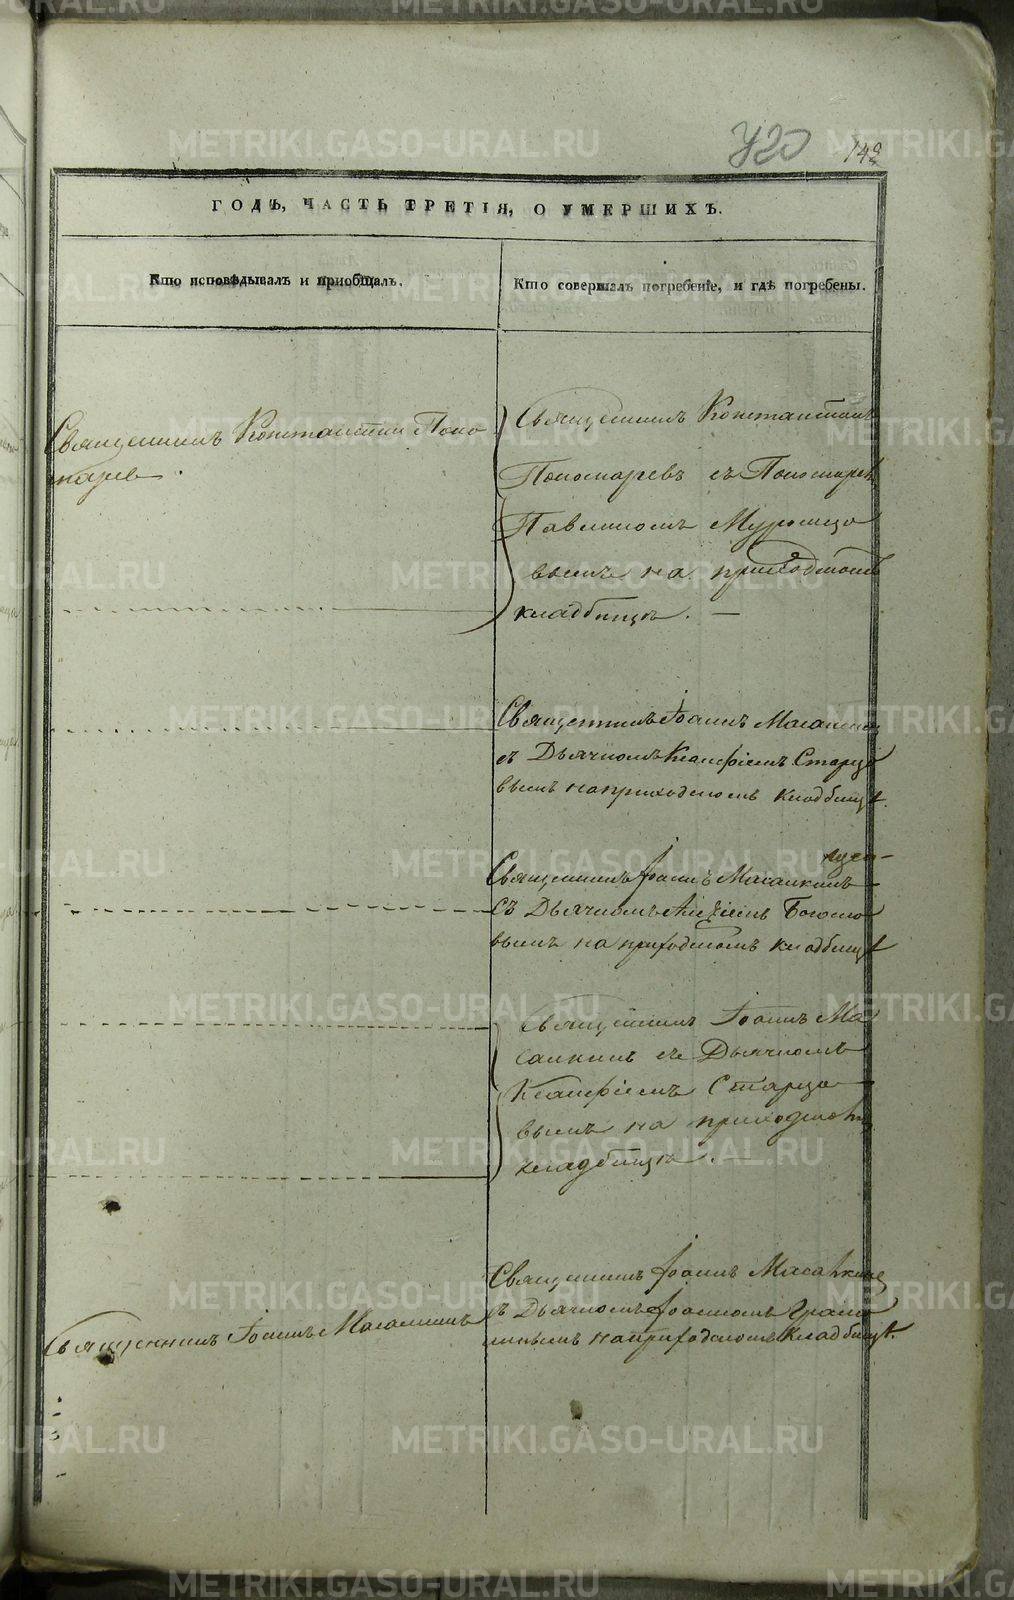 420 142
ГОДЪ, ЧАСТЬ ТРЕТІЯ, О УМЕРШИХЪ.
Кто исповѣдывалъ и пріобщалъ.
Кто совершалъ погребеніе, и гдѣ погребены.
Священникъ Константин Поно
марев
Священникъ Константинъ
Пономаревъ съ Пономаремъ
Павлиномъ
вымъ на приходскомъ
кладбищѣ. —
Священникъ Іоаннъ Масалкинъ
съ Дьячкомъ Ксанфіемъ Старцо
вымъ на приходскомъ кладбищѣ.
Священникъ Іоаннъ Масалкинъ
Съ Дьячкомъ Алексіемъ Богосло
вымъ на приходскомъ кладбищѣ
Священникъ Іоаннъ Ма
салкинъ съ Дьячкомъ
Ксанфіемъ Старцо
вымъ на приходском
кладбищѣ. —
Священникъ Іоаннъ Масалкинъ
съ Дьячкомъ Іоанномъ
на приходскомъ Кладбищѣ.
Священникъ Іоаннъ Масалкинъ
METRIKI.GASO-URAL.RU